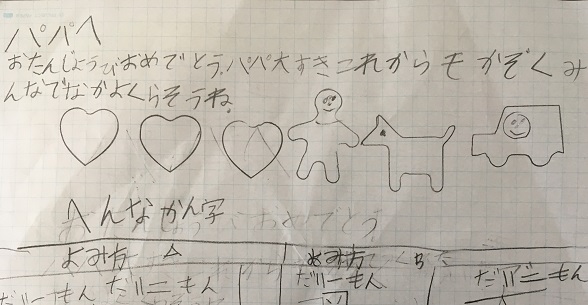 パパへ
おたんじょうびおめでとう。パパ大すきこれからもかぞくみ
んなでなかよくらそうね。
へんなかん字
よみ方 A
よみ方 B
だりーもん だりーもん
だりーもん だりーもん